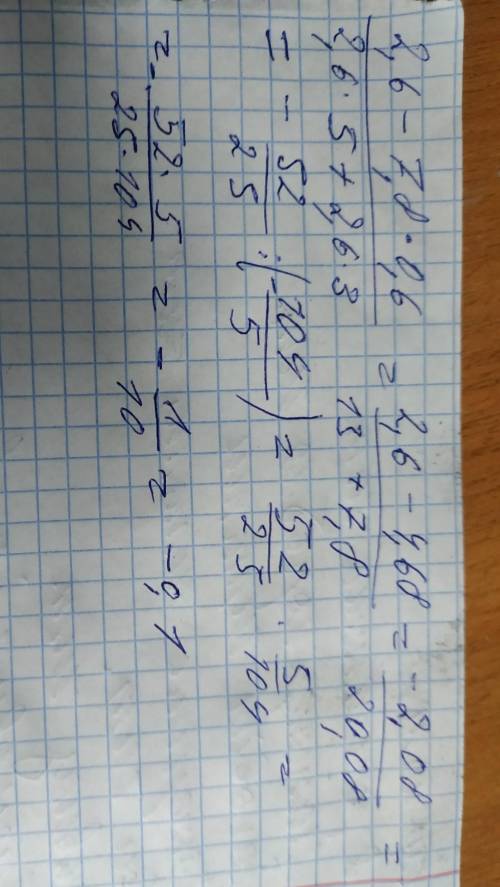 (2,6 - 7,8 · 0,6) / (2,6 · 5 + 2,6 · 3) = (2,6 - 4,68) / (13 + 7,8) = (-2,08) / (20,08) =
= - 52/25 : (-104/5) = 52/25 · 5/104 =
= - (52 · 5) / (25 · 104) = - 1/10 = - 0,1